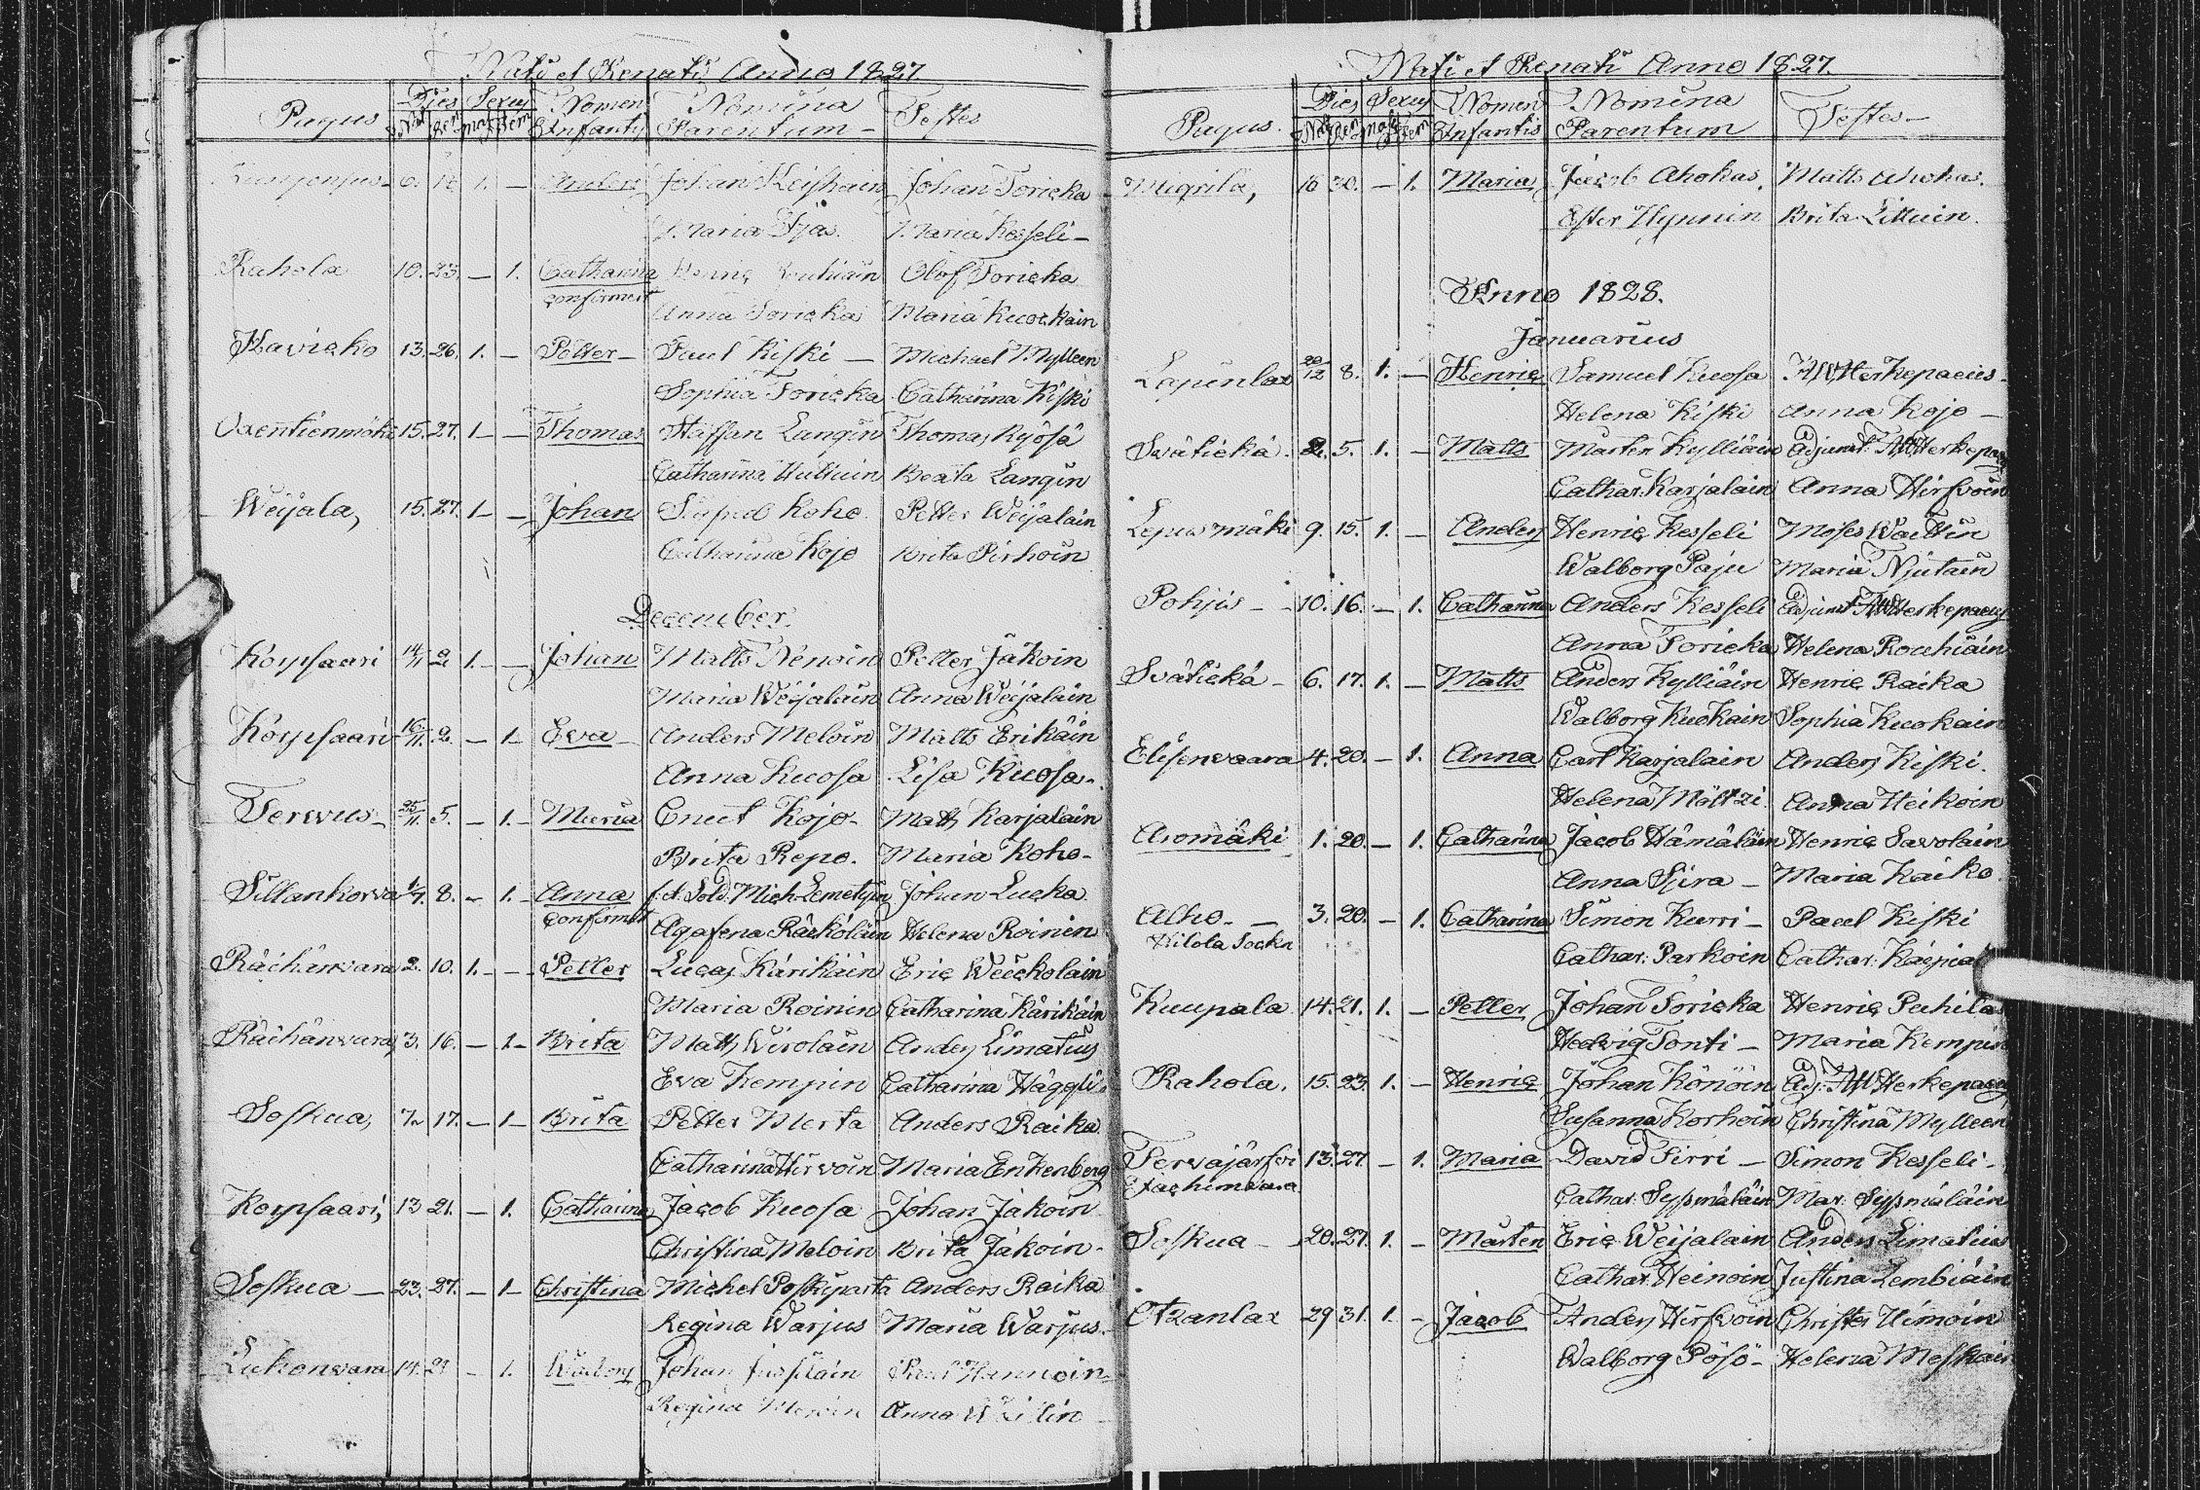 Nati et Renati Anno 1827
Pagus Dies Sexus Nomen Nomina Testes
Nat Ren mas fem Infantis Parentum
6. 1. — Anders Johan Johan Toricka
Maria Maria Kesseli
Rahola 10. 23. — 1. Catharina Olof Toricka
confirmat Anna Toricka Maria Kuockain
Haricko 13. 26. 1. — Petter Paul Kiski Michael Mylleen
Sophia Toricka Catharina Kiski
15. 27. 1. — Thomas Staffan Langin Thomas Kyösä
Catharina Huttuin Beata Langin
Weijala, 15. 27. 1. — Johan Sigfred Koho Petter Weijalain
Catharina Kojo Brita Pirhoin
December
Korpsaari 14/11 2 1. — Johan Matts Nenoin Petter Jäkoin
Maria Weijalain Anna Weijalain
Korpsaari 16/11. 2. — 1. Eva Anders Meloin Matts Erikäin
Anna Kuosa Lisa Kuosa
Tervus 25/11. 5. — 1. Maria Cnut Kojo Matts Karjalain
Brita Repo. Maria Koho
Sillankorva 8. — 1. Anna Sold. Mich. Lemetyin Johan Lucka
confirmat Agafena Räsköläin Helena Roinin
Räihänvara 2. 10. 1. — Petter Lucas Kärikäin Eric Weickolain
Maria Roinin Catharina Kärikäin
Räihänvara 3. 16. — 1. Brita Matts Wirolain Anders Limatius
Eva Kempin Catharina Häggli
Soskua, 7. 17. — 1. Brita Petter Merta Anders Raika
Catharina Hirvoin Maria Enkenberg
Korpsaari, 13 21. — 1. Catharina Jacob Kuosa Johan Jäkoin
Christina Meloin Brita Jäkoin
Soskua 23. 27. — 1. Christina Michel Poskiparta Anders Raika
Regina Warjus Maria Warjus
Lukenvara 14. — 1. Walborg Johan Jussilain Paul Hannoin
Regina Anna
Nati et Renati Anno 1827.
Pagus. Dies Sexus Nomen Nomina Testes
Nat Ren mas fem Infantis Parentum
Migrila, 16 30. — 1. Maria Jacob Ahokas, Matts Ahokas.
Ester Hynnin Brita Littuin.
Anno 1828.
Januarius
Lapinlax 20/12 8. 1. — Henric Samuel Kuosa Herkepaeus
Helena Kiski Anna Kojo
Svätickä 2. 5. 1. — Matts Mårten Kylliäin Adjunct. Herkepaeus
Cathar. Karjalain Anna Hirfvoin
Lepusmäki 9. 15. 1. — Anders Henric Kesseli Moses Wattin
Walborg Paju Maria Njutain
Pohjis 10. 16. — 1. Catharina Anders Kesseli Adjunct Herkepaeus
Anna Toricka Helena Rouhiain
Svätickä 6. 17. 1. — Matts Anders Kylliäin Henric Raika
Walborg Kuokain Sophia Kuokain
Elisenvaara 4. 20. — 1. Anna Carl Karjalain Anders Kiski.
Helena Mältzi Anna Heikoin
Aromäki 1. 20. — 1. Catharina Jacob Hämäläin Henric Savolain
Anna Siira Maria Kaiko
Alho 3. 20. — 1. Catharina Simon Kurri Paul Kiski
Hitola Sockn Cathar. Parkoin Cathar. Käipiäi
Kuupala 14. 21. 1. — Petter Johan Toricka Henric Puhila
Hedvig Tonti Maria Kempin
Rahola. 15. 23. 1. — Henric Johan Könöin Adj. Herkepaeus
Susanna Korhoin Christina Mylleen
Tervajärfvi 13. 27. — 1. Maria David Tirri Simon Kesseli
Cathar. Syssmäläin Mar. Syssmäläin
Soskua 20. 27. 1. — Mårten Eric Weijalain Anders Limatius
Cathar. Heinoin Justina Lembiäin
Otzanlax 29 31. 1. — Jacob Anders Hirfvoin Christer Himoin
Walborg Pösö Helena Meskain